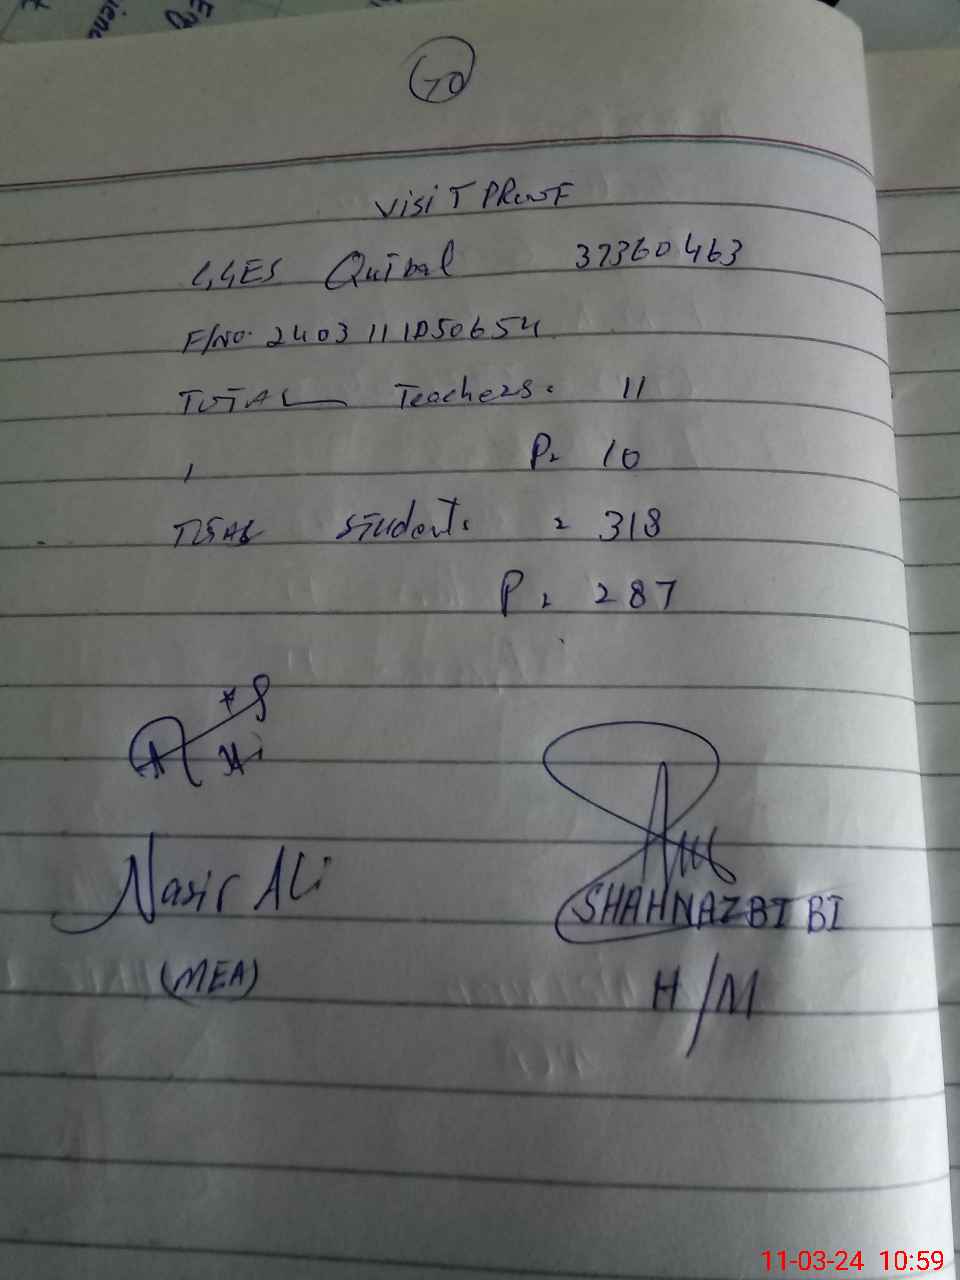 70
VISIT PROOF
GGES Qutbal 37360463
F/No. 240311 1050654
TOTAL Teachers. 11
P. 10
TOTAL Students = 318
P. 287
Nasir Ali SHAHNAZ BI BI
(MEA) H/M
11-03-24 10:59